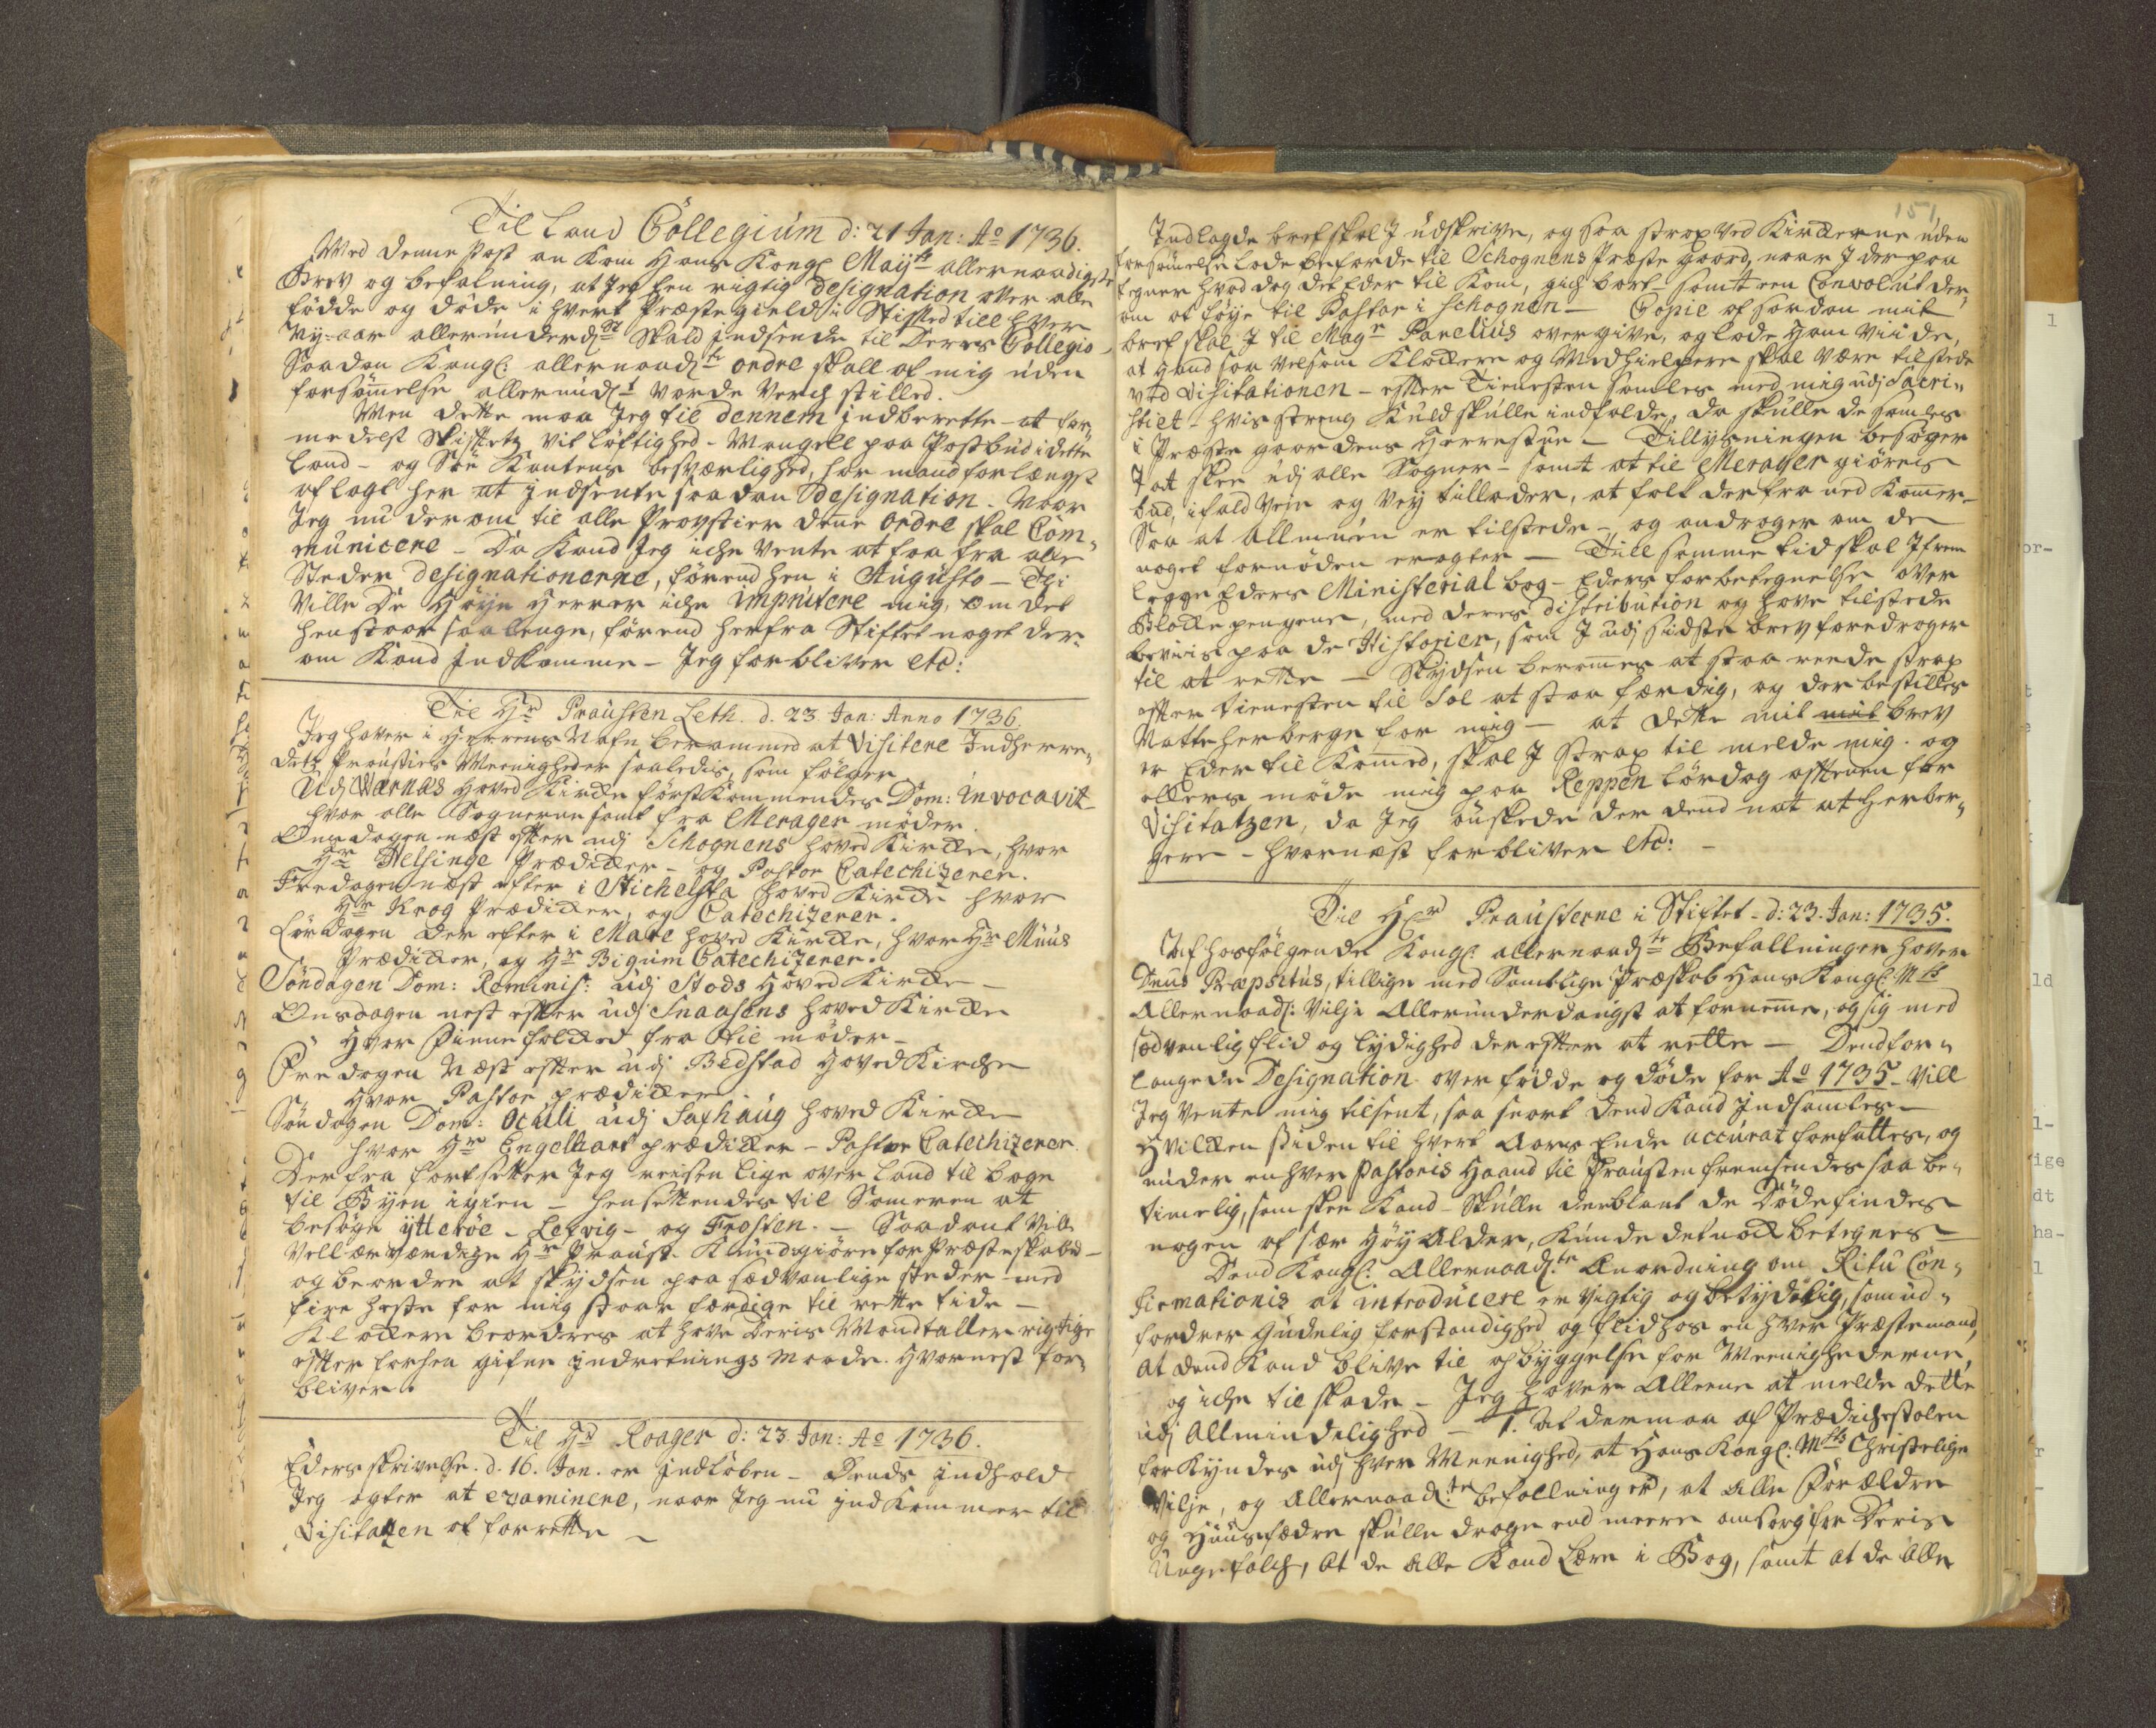 Til Land Collegium d: 21 Jan: Ao 1736.
Med denne Post an kom Hans Kongl Mayts allernaadigste
Brev og befalning, at Jeg een rigtig Designation over alle
fødde og døde i hvert Præstegield i Stifted till hver
Ny-aar allerunderdst skald indsende til Deres Collegio
Saadan Kongl: allernaadste ordre skall af mig uden
forsømmelse allerundst vorde Verch stilled.
Men dette maa Jeg til dennem indberette - at for¬
medelst Skiftetz vitløftighed - Mangell paa Postbud i dette
Land - og Søe Kantens besværlighed, har mand forlængst
aflagt her at indsente saadan Designation. Naar
Jeg nu derom til alle Provstier denne Ordre skal Com¬
municere - Da Kand Jeg iche vente at faa fra alle
Steder designationerne, førend hen i Augusto - Thi
Ville De Høye Herrer iche imputere mig, om det
henstaar saa lenge, førend herfra Stiftet noget der¬
om Kand Indkomme - Jeg forbliver etc:
Til Hr Prousten Leth. d. 23 Jan: Anno 1736.
Jeg haver i Herrens Nafn berammed at Visitere Indherre¬
detz Prousties Meenigheder saaledis, som følger
Udj Værnæs Hoved Kircke førstkommendes Dom: Invocavit
hvor alle Sognerne samt fra Merager møder.
Onsdagen næst efter udj Schognens hoved Kircke, hvor
Hr Helsinge Prædicker - og Pastor Catechizerer.
Fredagen næst efter i Stichelsta hoved Kircke hvor
Hr Krog Prædicker, og Catechizerer.
Lørdagen der efter i Mære hoved Kircke, hvor Hr Muus
Prædicker, og Hr Bigum Catechizerer.
Søndagen Dom: Reminis: udj Stods Hoved Kircke -
Onsdagen nest efter udj Snaasens hoved Kircke
Hvor Finnefolcked fra til møder -
Fredagen Næst efter udj Bedstad Hoved Kirche
Hvor Pastor prædicker
Søndagen Dom: Oculi udj Saxhaug hoved Kircke
hvor Hr Engelhart prædicker - Pastor Catechizerer
Der fra fortsetter Jeg reisen lige over land til bage
til Byen igien - hensettendes til Sommeren at
besøge ytterøe - Lexvig - og Frosten. - Saadant Vill
Vellærværdige Hr Proust Kundgiøre for Præsteskabed -
og beordre at skydsen paa sædvanlige steder med
fire heste for mig staar færdige til rette tide -
Klockere beordres at have deris Mandtaller rigtige
efter forhen gifne indretnings maade. Hvornest for¬
bliver.
Til Hr Roager d: 23 Jan: Ao 1736.
Eders skrivelse d. 16. Jan. er indløben - Dends indhold
Jeg agter at examinere, naar Jeg nu ind kommer til
Visitatzen at forrette -
151
Indlagde bref skal I udskrive, og saa strax ved Kirckerne uden
forsømmelse lade beforde til Schognens Præste gaard, naar I der paa
tegner hvad dag det Eder til kom, gich bort - samt een Convolut der¬
om at føye til Pastor i Schognen - Copie af saadan mit
bref skal I til Magr Parelius overgive, og lade ham viide,
at hand saa velsom Klockere og Medhielpere skal være tilstede
ved Visitationen - efter Tienesten samles med mig udj Sacri¬
stiet - hvis streng Kuld skulle indfalde, da skulle de samles
i Præste gaardens Herrestue - Tillysningen besøger
I at skee udj alle Sogner - samt at til Merager giøres
bud, ifald Veir og Vey tillader, at folk derfra ned kommer -
Saa at Allmuen er tilstede - og andrager om de
noget fornøden eragter - Till samme tid skal I frem
legge Eders Ministerial bog - Eders forbetegnelse over
Blocke pengene, med deres distribution og have tilstede
beviis paa de Historier, som I udj sidste brev foredrager
til at rette - Skydsen berammes at staa reede strax
efter tienesten til Sal at staa færdig, og der bestilles
Natteherberge for mig - at dette mit mit brev
er Eder til Kommed, skal I strax til melde mig. og
ellers møde mig paa Reppen Lørdag afftenen før
Visitatzen, da Jeg ønskede der dend nat at herber¬
gere - hvornæst forbliver etc: -
Til Hrr Prousterne i Stiftet - d: 23. Jan: 1735.
Af hosfølgende Kongl: allernaadste Befallninger haver
Dnus Præpositus, tillige med Samtlige Præskab Hans Kongl: Mts
Allernaads: Vilje Allerunderdaigst at fornemme, og sig med
sædvanlig flid og lydighed der efter at rette - Dend for¬
langede Designation over fødde og døde for Ao 1735 - Vill
Jeg vente mig tilsent, saa snart dend Kand Indsamles -
Hvilcken siden til hvert Aars Ende accurat forfattes, og
under en hver Pastoris Haand til Prousten fremsendes saa be¬
timelig, som skee Kand - Skulle der blant de Døde findes
nogen af sær Høy Alder, kunde det nock betegnes -
Dend Kongl: Allernaads:te Anordning om Ritu Con¬
firmationis at introducere er vigtig og betydelig, som ud¬
fordrer Gudelig forstandighed og flid hos en hver Præstemand,
at dend Kand blive til opbyggelse for Meenighederne,
og iche til skade - Jeg haver Alleene at melde dette
udj Allmindelighed - 1. at der maa af Prædichestolen
forkyndes udj hver Meenighed, at Hans Kongl: Mtts Christelige
Vilje, og Allernaads:te befallning er, at alle Forældre
og Huusfædre skulle drage end meere omsorg for Deris
Unge folch, at de alle Kand Lære i Bog, samt at de alle